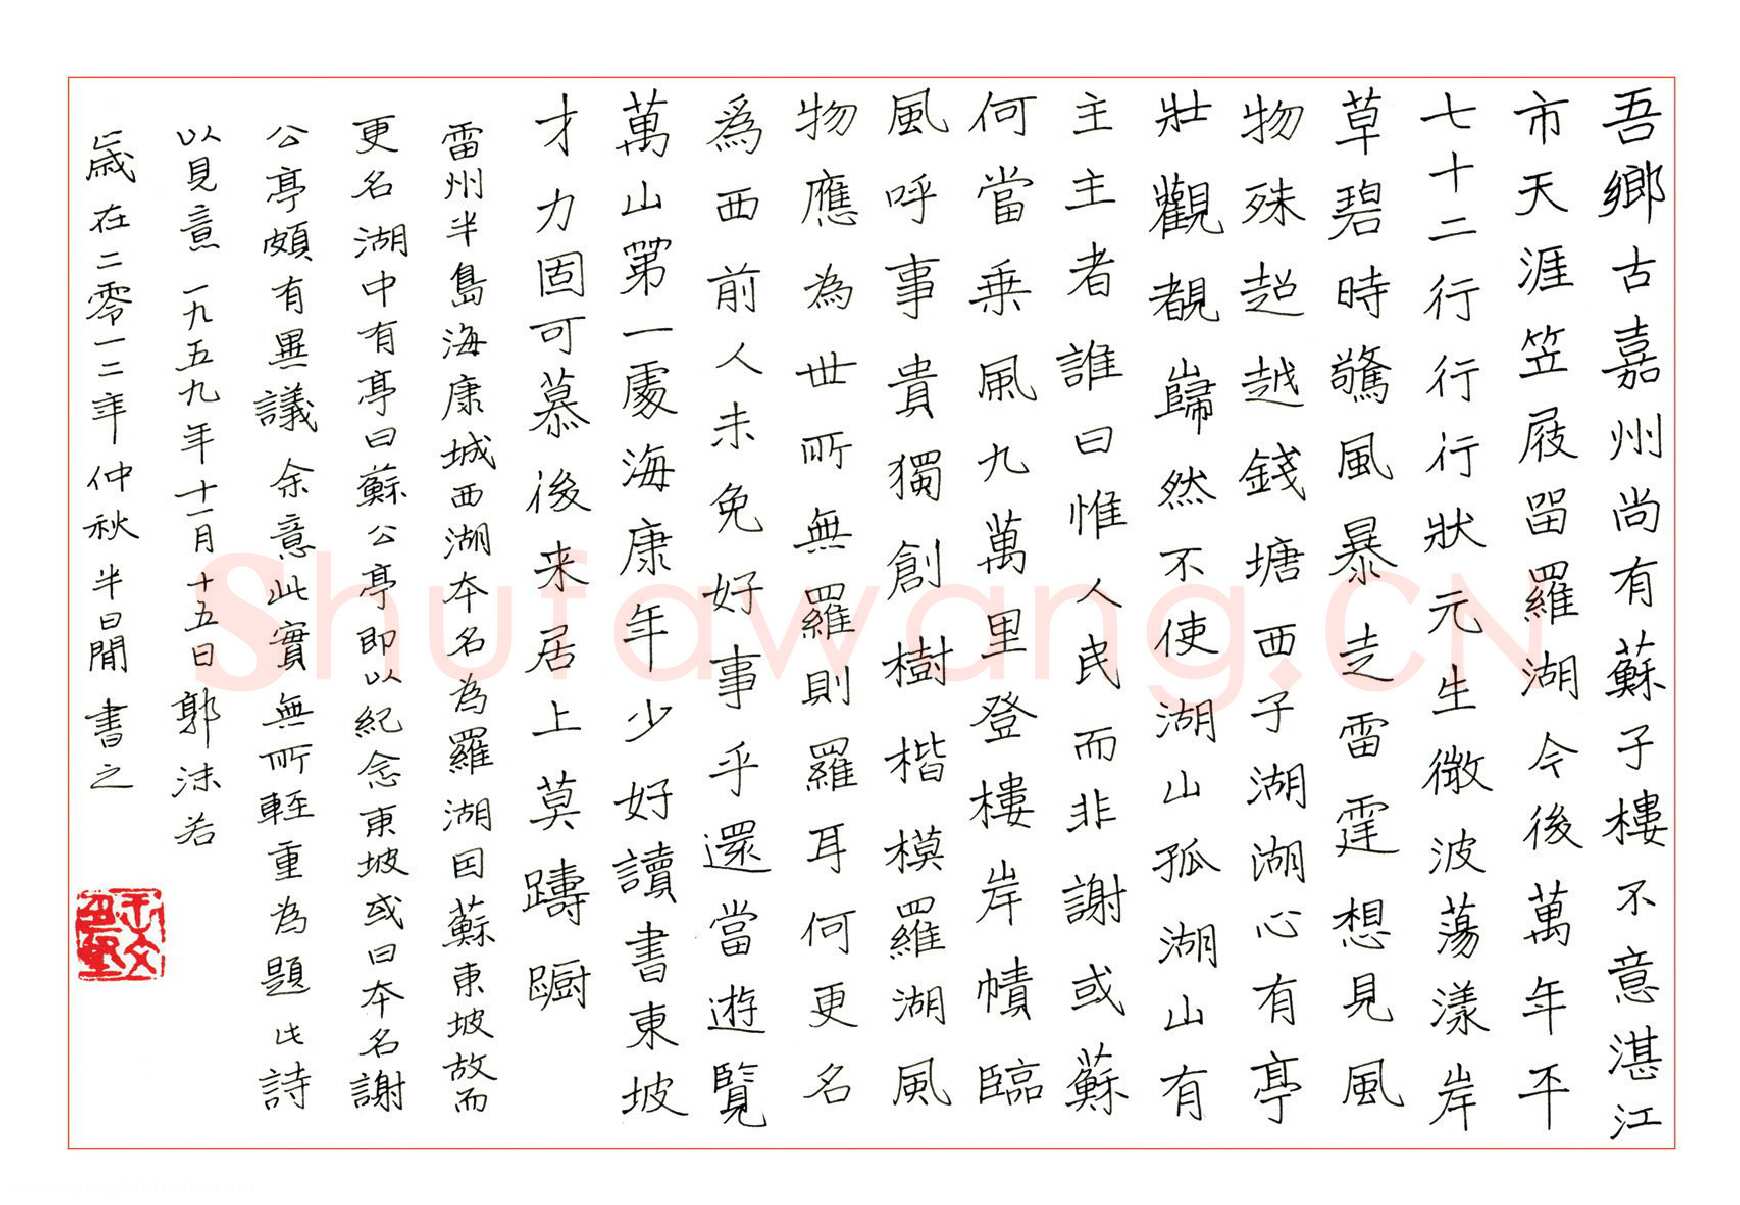 吾鄉古嘉州尚有蘇子樓不意湛江
市天涯笠屐留羅湖今後萬年平
七十二行行行狀元生微波蕩漾岸
草碧時驚風暴走雷霆想見風
物殊超越錢塘西子湖湖心有亭
壯觀覩巋然不使湖山孤湖山有
主主者誰曰惟人民而非謝或蘇
何當乗風九萬里登樓岸幘臨
風呼事貴獨創樹楷模羅湖風
物應為世所無羅則羅耳何更名
爲西前人未免好事乎還當遊覽
萬山第一處海康年少好讀書東坡
才力固可慕後来居上莫躊躕
雷州半島海康城西湖本名為羅湖因蘇東坡故而
更名湖中有亭曰蘇公亭即以紀念東坡或曰本名謝
公亭頗有異議余意此實無所輊重為題此詩
以見意一九五九年十一月十五日 郭沫若
歲在二零一二年仲秋半日閒書之
Shufawang.CN